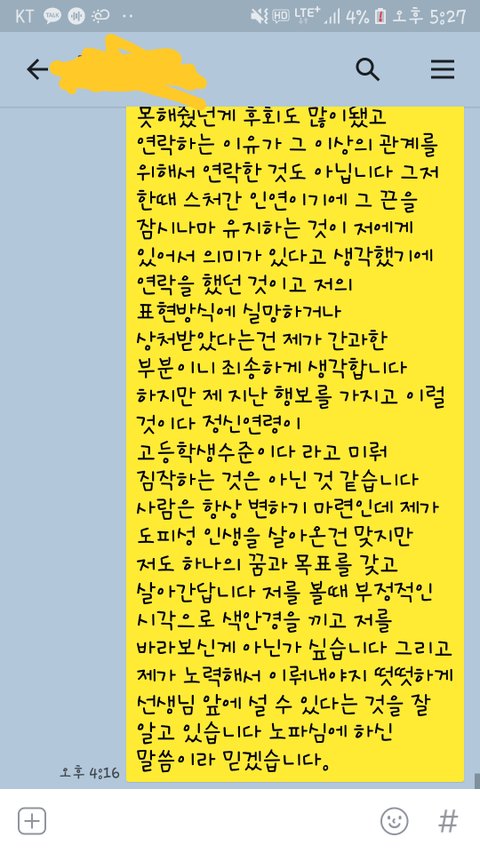 KT TALK HD LTE+ 4% 오후 5:27
못해줬던게 후회도 많이됐고
연락하는 이유가 그 이상의 관계를
위해서 연락한 것도 아닙니다 그저
한때 스처간 인연이기에 그 끈을
잠시나마 유지하는 것이 저에게
있어서 의미가 있다고 생각했기에
연락을 했던 것이고 저의
표현방식에 실망하거나
상처받았다는건 제가 간과한
부분이니 죄송하게 생각합니다
하지만 제 지난 행보를 가지고 이럴
것이다 정신연령이
고등학생수준이다 라고 미뤄
짐작하는 것은 아닌 것 같습니다
사람은 항상 변하기 마련인데 제가
도피성 인생을 살아온건 맞지만
저도 하나의 꿈과 목표를 갖고
살아간답니다 저를 볼때 부정적인
시각으로 색안경을 끼고 저를
바라보신게 아닌가 싶습니다 그리고
제가 노력해서 이뤄내야지 떳떳하게
선생님 앞에 설 수 있다는 것을 잘
알고 있습니다 노파심에 하신
말씀이라 믿겠습니다.
오후 4:16
#